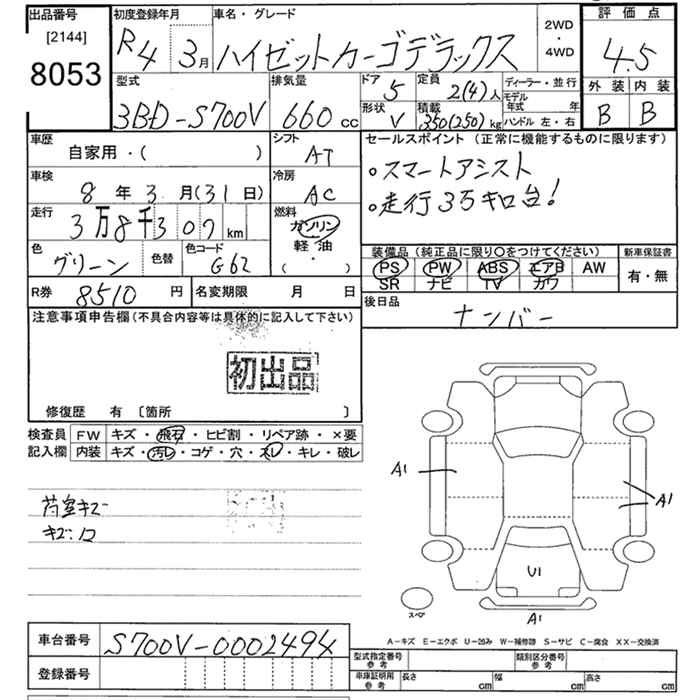 出品番号
[2144]
8053
初度登録年月
R4 3月
車名・グレード
ハイゼットカーゴデラックス
2WD
・
4WD
評価点
4.5
外装 内装
B B
型式
3BD-S700V
排気量
660 cc
ドア
5
定員
2(4)人
形状
V
積載
350(250)kg
ディーラー・並行
モデル年式 年
ハンドル 左・右
車歴
自家用・( )
シフト
AT
車検
8年3月(31日)
冷房
AC
走行
3万8千307km
燃料
ガソリン
軽油
( ・ )
色
グリーン
色替
色コード
G62
R券
8510円
名変期限 月 日
セールスポイント(正常に機能するものに限ります)
・スマートアシスト
・走行3万キロ台!
装備品(純正品に限り○をつけてください)
新車保証書
PS PW ABS エアB AW
SR ナビ TV カワ
有・無
後日品
ナンバー
注意事項申告欄(不具合内容等は具体的に記入して下さい)
初出品
修復歴 有 〔箇所 〕
検査員 FW キズ・飛石・ヒビ割・リペア跡・×要
記入欄 内装 キズ・汚レ・コゲ・穴・スレ・キレ・破レ
荷室キズ
キズ・凹
A1
A1
U1
A1
スペア
A-キズ E-エクボ U-凹み W-補修跡 S-サビ C-腐食 XX-交換済
車台番号
S700V-0002494
登録番号
型式指定番号
参考
類別区分番号
参考
車庫証明用
参考
長さ cm
幅 cm
高さ cm